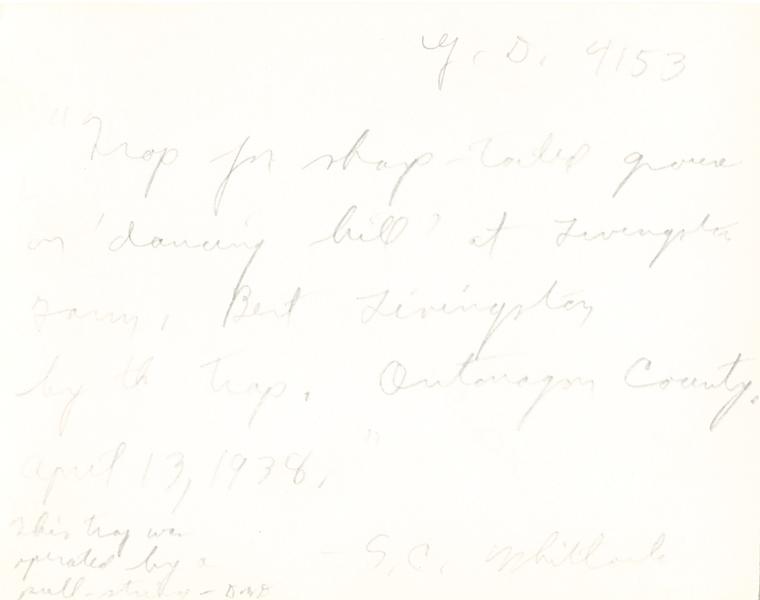 G. D. 4153
"Trap for sharp-tailed grouse
on 'dancing hill' at Livingston
Farm, Bert Livingston
by the trap. Ontonagon County,
April 13, 1938."
- S. C. Whitlock
This trap was
operated by a
pull-string - DWD